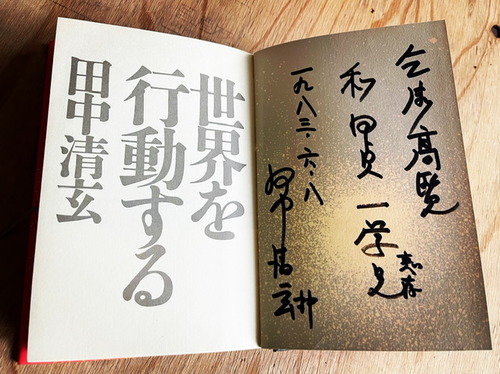 乞御高覧
和田貞一学兄
恵存
一九八三・六・八
田中清玄
世界を
行動する
田中清玄